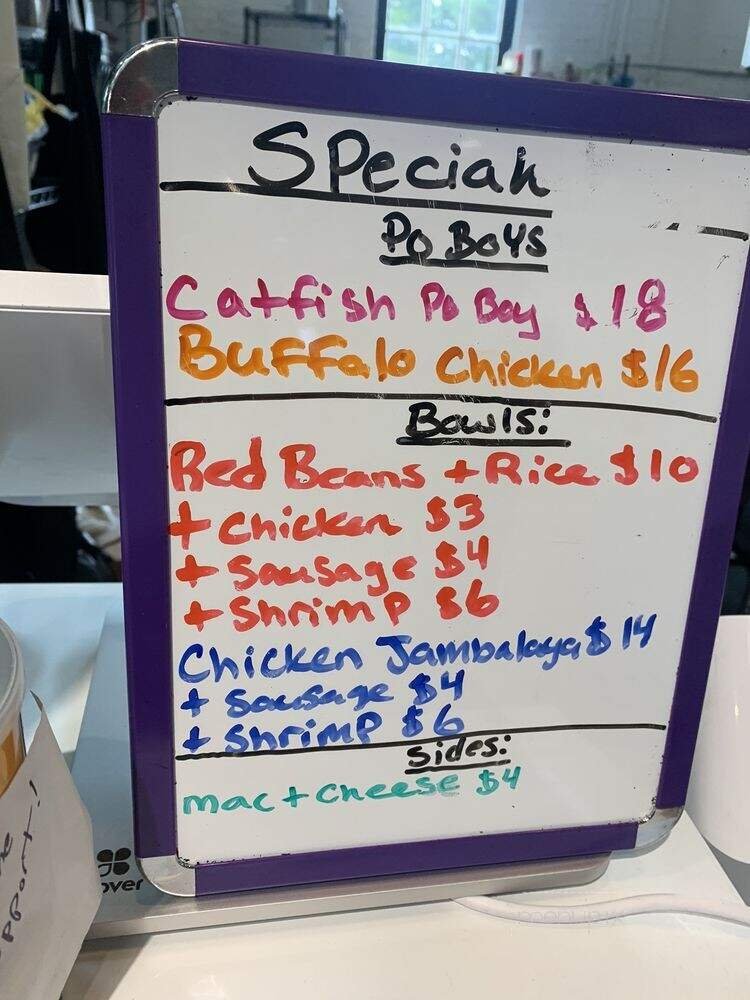 Special
Po Boys
Catfish Po Boy $18
Buffalo Chicken $16
Bowls:
Red Beans + Rice $10
+ Chicken $3
+ Sausage $4
+ Shrimp $6
Chicken Jambalaya $14
+ Sausage $4
+ Shrimp $6
Sides:
mac + Cheese $4
over
pport!